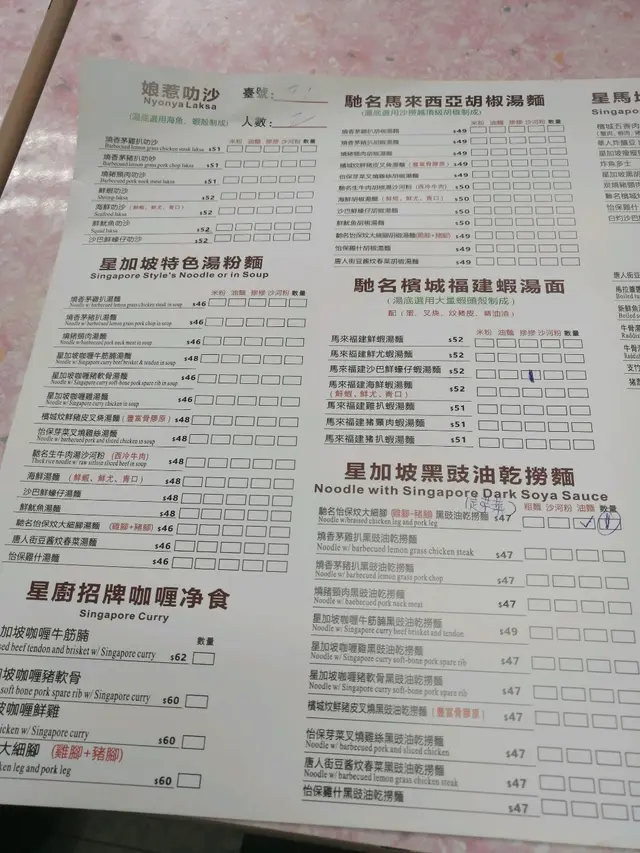 娘惹叻沙
Nyonya Laksa
(湯底選用海魚、蝦殼制成)
臺號:
人數:
米粉 油麵 擦擦 沙河粉 數量
燒香茅雞扒叻沙
Barbecued lemon grass chicken steak laksa $51
燒香茅豬扒叻沙
Barbecued lemon grass pork chop laksa $51
燒豬頸肉叻沙
Barbecued pork neck meat laksa $51
鮮蝦叻沙
Shrimp laksa $52
海鮮叻沙 (鮮蝦、鮮尤、青口)
Seafood laksa $52
鮮魷魚叻沙
Squid laksa $52
沙巴鮮蠔仔叻沙 $52
星加坡特色湯粉麵
Singapore Style's Noodle or in Soup
米粉 油麵 擦擦 沙河粉 數量
燒香茅雞扒湯麵
Noodle w/ barbecued lemon grass chicken steak in soup $46
燒香茅豬扒湯麵
Noodle w/ barbecued lemon grass pork chop in soup $46
燒豬頸肉湯麵
Noodle w/ barbecued pork neck meat in soup $46
星加坡咖喱牛筋腩湯麵
Noodle w/ Singapore curry beef brisket & tendon in soup $48
星加坡咖喱豬軟骨湯麵
Noodle w/ Singapore curry soft-bone pork spare rib in soup $46
星加坡咖喱雞湯麵
Noodle w/ Singapore curry chicken in soup $46
檳城炆鮮豬皮叉燒湯麵 (豐富骨膠原) $48
怡保芽菜叉燒雞絲湯麵
Noodle w/ barbecued pork and sliced chicken in soup $48
馳名生牛肉湯沙河粉 (西冷牛肉)
Thick rice noodle w/ raw sirloin sliced beef in soup $48
海鮮湯麵 (鮮蝦、鮮尤、青口) $48
沙巴鮮蠔仔湯麵 $48
鮮魷魚湯麵 $48
馳名怡保炆大細腳湯麵 (雞腳+豬腳) $46
唐人街豆醬炆春菜湯麵 $46
怡保雞什湯麵 $46
星廚招牌咖喱净食
Singapore Curry
數量
加坡咖喱牛筋腩
sed beef tendon and brisket w/ Singapore curry $62
坡咖喱豬軟骨
soft bone pork spare rib w/ Singapore curry $60
坡咖喱鮮雞
hicken w/ Singapore curry $60
大細腳 (雞腳+豬腳)
ken leg and pork leg $60
馳名馬來西亞胡椒湯麵
(湯底選用沙撈越頂級胡椒制成)
米粉 油麵 擦擦 沙河粉 數量
燒香茅雞扒胡椒湯麵 $49
燒香茅豬扒胡椒湯麵 $49
燒豬頸肉胡椒湯麵 $49
檳城炆豬皮叉燒胡椒湯麵 (豐富骨膠原) $49
怡保芽菜叉燒雞絲胡椒湯麵 $49
馳名生牛肉胡椒湯沙河粉 (西冷牛肉) $50
海鮮胡椒湯麵 (鮮蝦、鮮尤、青口) $50
沙巴鮮蠔仔胡椒湯麵 $50
鮮魷魚胡椒湯麵 $50
馳名怡保炆大細腳胡椒湯麵 (雞腳+豬腳) $49
怡保雞什胡椒湯麵 $49
唐人街豆醬炆春菜胡椒湯麵 $49
馳名檳城福建蝦湯面
(湯底選用大量蝦頭殼制成)
配 (蛋、叉燒、炆豬皮、豬油渣)
米粉 油麵 擦擦 沙河粉 數量
馬來福建鮮蝦湯麵 $52
馬來福建鮮尤蝦湯麵
馬來福建沙巴鮮蠔仔蝦湯麵 $52
馬來福建海鮮蝦湯麵
(鮮蝦、鮮尤、青口) $52
馬來福建雞扒蝦湯麵 $51
馬來福建豬頸肉蝦湯麵 $51
馬來福建豬扒蝦湯麵 $51
星加坡黑豉油乾撈麵
Noodle with Singapore Dark Soya Sauce
粗麵 沙河粉 油麵 數量
馳名怡保炆大細腳 (雞腳+豬腳) 黑豉油乾撈麵
Noodle w/braised chicken leg and pork leg $47
燒香茅雞扒黑豉油乾撈麵
Noodle w/ barbecued lemon grass chicken steak $47
燒香茅豬扒黑豉油乾撈麵
Noodle w/ barbecued lemon grass pork chop $47
燒豬頸肉黑豉油乾撈麵
Noodle w/ barbecued pork neck meat $47
星加坡咖喱牛筋腩黑豉油乾撈麵
Noodle w/ Singapore curry beef brisket and tendon $49
星加坡咖喱雞黑豉油乾撈麵
Noodle w/ Singapore curry soft-bone pork spare rib $47
星加坡咖喱豬軟骨黑豉油乾撈麵
Noodle w/ Singapore curry soft-bone pork spare rib $47
檳城炆鮮豬皮叉燒黑豉油乾撈麵 (豐富骨膠原) $47
怡保芽菜叉燒雞絲黑豉油乾撈麵
Noodle w/ barbecued pork and sliced chicken $47
唐人街豆醬炆春菜黑豉油乾撈麵
Noodle w/ barbecued lemon grass chicken steak $47
怡保雞什黑豉油乾撈麵 $47
星馬